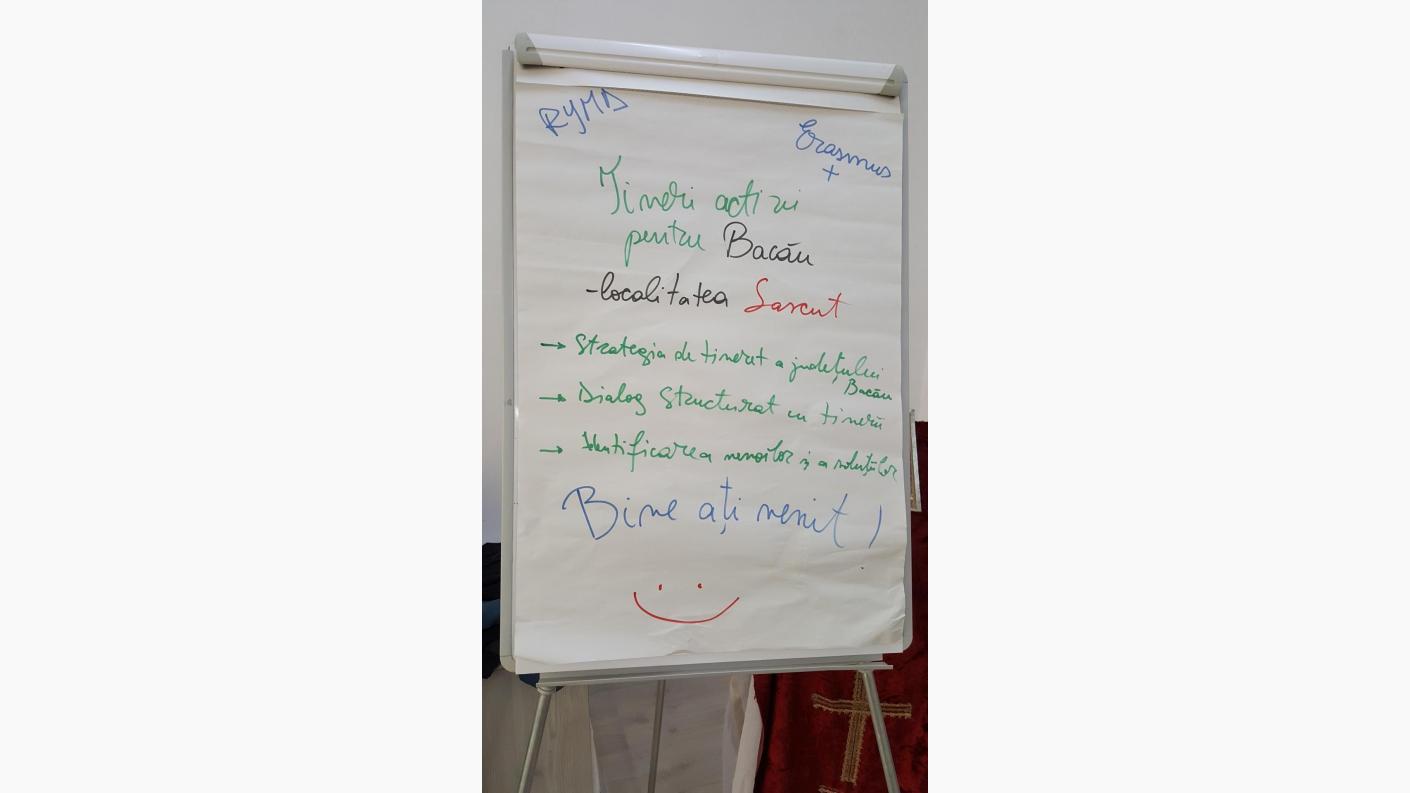 RYMD
Erasmus
+
Tineri activi
pentru Bacău
-localitatea Sascut
→ Strategia de tineret a județului
Bacău
→ Dialog Structurat cu tinerii
→ Identificarea nevoilor și a soluțiilor
Bine ați venit!